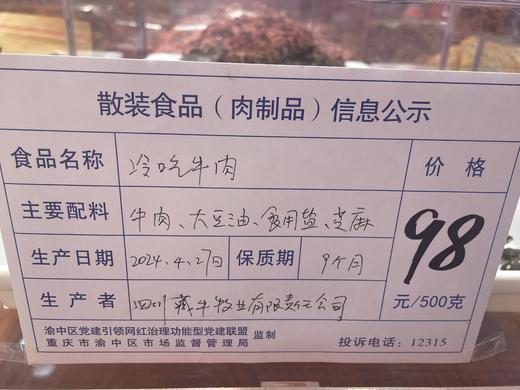 散装食品（肉制品）信息公示
食品名称 冷吃牛肉 价格
主要配料 牛肉、大豆油、食用盐、芝麻 98
生产日期 2024.4.27日 保质期 9个月
元/500克
生产者 四川藏牛牧业有限责任公司
渝中区党建引领网红治理功能型党建联盟
重庆市渝中区市场监督管理局 监制 投诉电话：12315